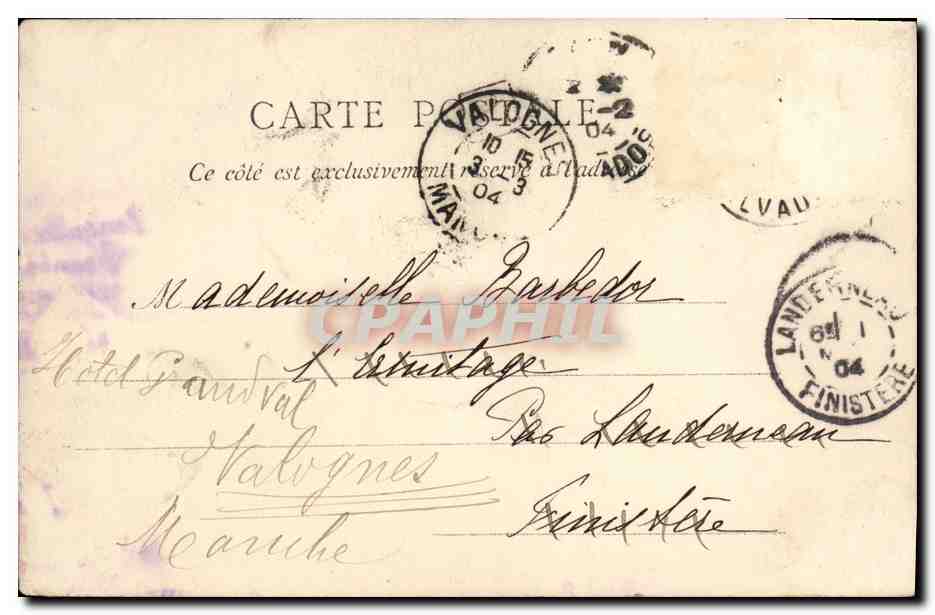 CARTE POSTALE
Ce côté est exclusivement réservé à l'adresse
VALOGNES
10 15
3 3
04
MANCHE
-2
04
LVAD
LANDERNEAU
04
FINISTÈRE
Mademoiselle Barbedor
l'Ermitage
Par Landerneau
Finistère
Hôtel Grandval
Valognes
Manche
CPAPHIL